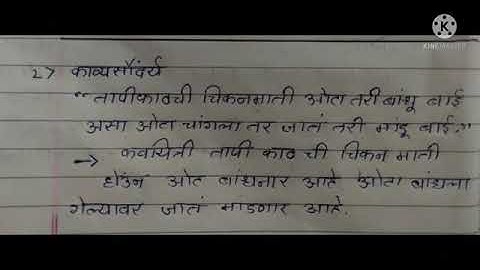 KINEMASTER
2> काव्यसौंदर्य
"तापीकाठची चिकनमाती ओटा तरी बांधू बाई
असा ओटा चांगला तर जातं तरी मांडू बाई."
→ कवयित्री तापी काठ ची चिकन माती
होउन ओट बांधनार आहे ओटा बांधला
गेल्यावर जातं माडणार आहे.